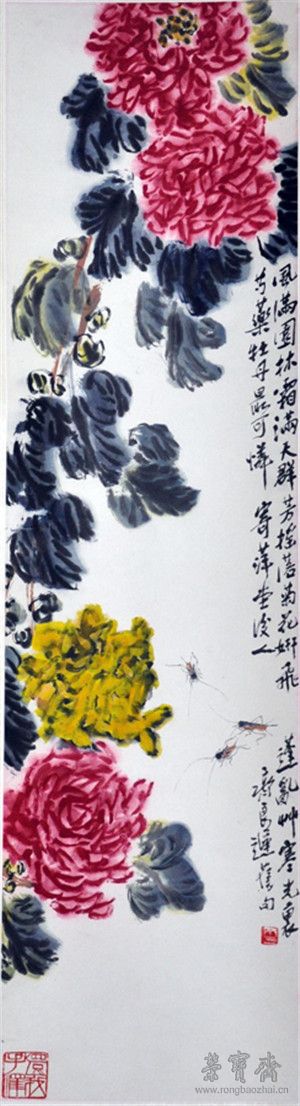 風滿園林霜滿天群芳摧落菊花妍飛蓬亂艸寒光裏
芍藥牡丹最可憐 寄萍堂後人
齊良遲舊句
榮寶齋
www.rongbaozhai.cn